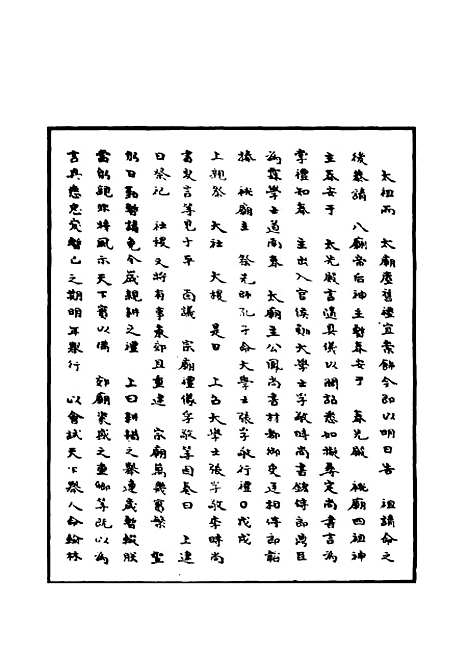 太祖而 太廟應舊禮宜案飾今即以明日告 祖請命之
後恭請 八廟帝后神主暫奉安于 奉先殿 祧廟四祖神
主奉安于 太光殿言遺具儀以聞詔悉如擬尋定尚書言為
掌禮知奉 主出入官侯勛大學士孚敬時尚書鋐侍郎溥且
為霖學士道南奉 太廟主公鳳尚書材都御史廷相侍郎韜
捧 祧廟主 祭先師孔子命大學士張孚敬行禮○戊戌
上親祭 太社 太稷 是日 上召大學士張孚敬李時尚
書夏言等見于平 面議 宗廟禮儀孚敬等因奏曰 上連
日祭祀 社稷又將有事泰郊且重建 宗廟萬幾實繁 聖
躬日勤暫請免今歲親耕之禮 上曰耕耤之舉連歲暫輟朕
當躬親昨將風示天下實以傋 郊廟粢盛之重卿等既以為
言具悉忠定暫已之期明年舉行 以會試天下舉人命翰林